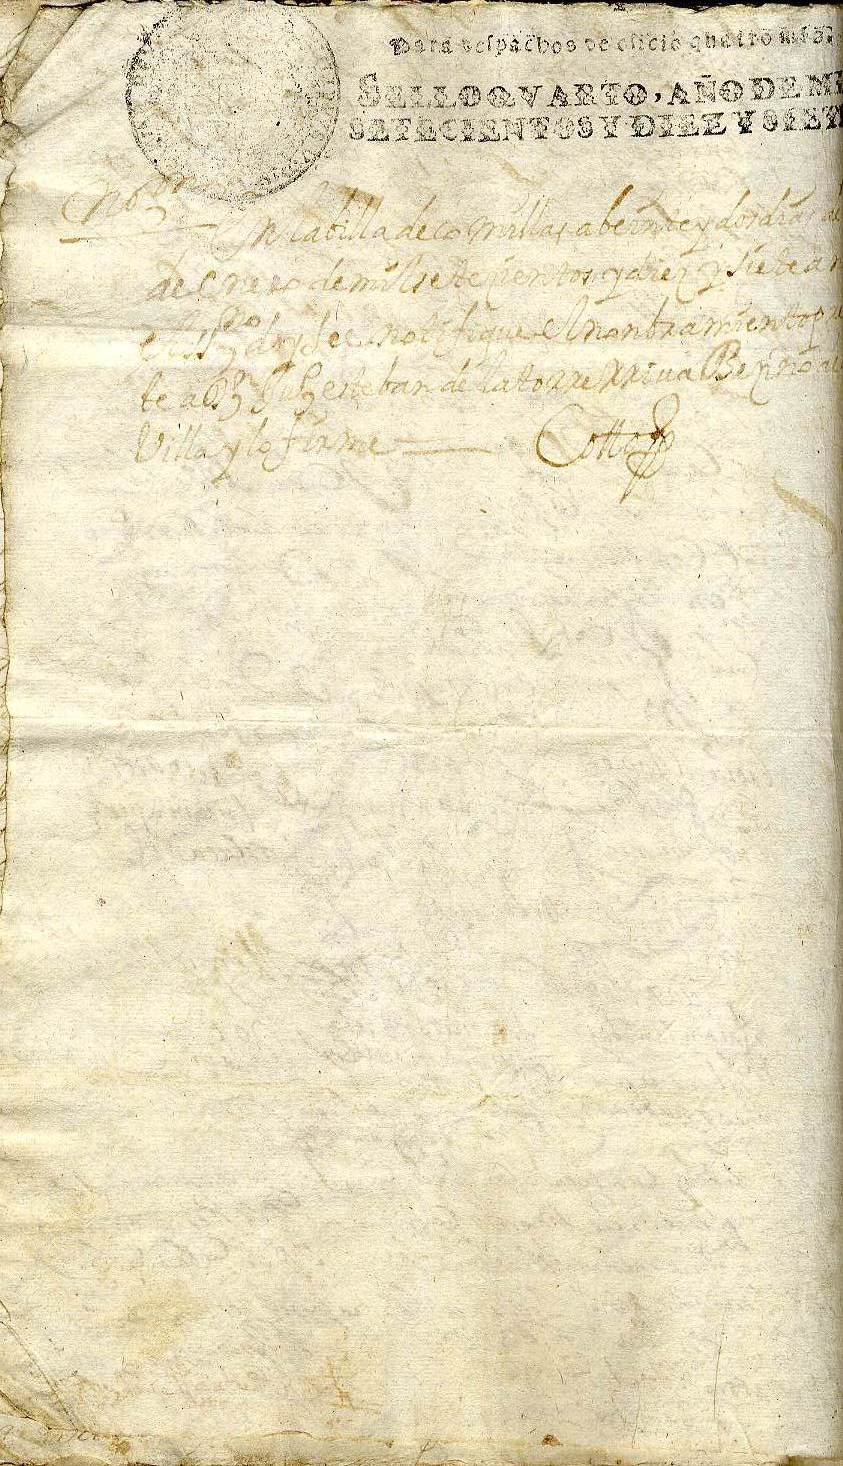 Para despachos de oficio quatro mrs.
SELLO QVARTO, AÑO DE MI
SETECIENTOS Y DIEZ Y SIET
En la billa de comillas a beinte y dos dias del
de enero de mil setezientos y diez y siete a
el ess.no doy fee notifique el nonbramiento pre
te a Dn Juº esteban de la torre Rriva Bezino
Villa y lo firme
Cotto